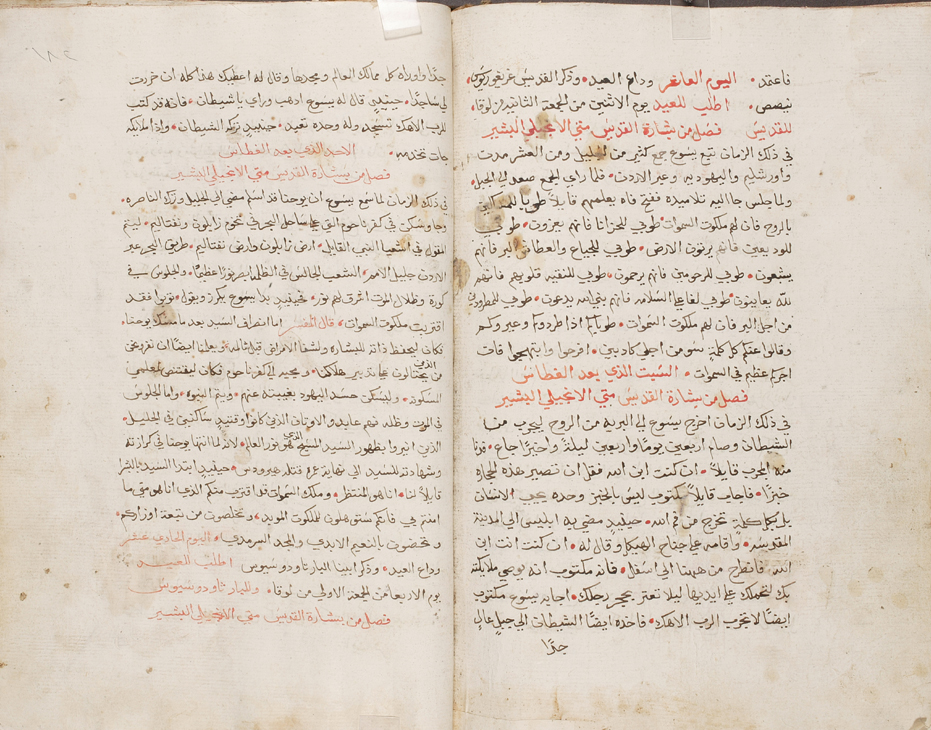 فاعتمد. اليوم العاشر وداع العيد. وذكر القديس غريغوريوس
نيصص. اطلب للعيد يوم الاثنين من الجمعة الثانية من لوقا.
للقديس فصل من بشارة القديس متي الانجيلي البشير
في ذلك الزمان تبع يسوع جمع كثير من الجليل ومن العشر مدن
واورشليم واليهوديه وعبر الاردن. فلما راي الجمع صعد الي الجبل.
ولما جلس جا اليه تلاميذه ففتح فاه يعلمهم قايلاً طوبا للمساكين
بالروح فان لهم ملكوت السموات. طوبي للحزانا فانهم يعزون. طوبي
للوديعين فانهم يرثون الارض. طوبي للجياع والعطاش البر فانهم
يشبعون. طوبي للرحومين فانهم يرحمون. طوبي للنقيه قلوبهم فانهم
لله يعاينون. طوبي لفاعلي السلامه فانهم بني الله يدعون. طوبي للمطرودين
من اجل البر فان لهم ملكوت السموات. طوباكم اذا طردوكم وعيروكم
وقالوا عنكم كل كلمة سوء من اجلي كاذبين. افرحوا وابتهجوا فان
اجركم عظيم في السموات. السبت الذي بعد الغطاس
فصل من بشارة القديس متي الانجيلي البشير
في ذلك الزمان اخرج يسوع الي البرية من الروح ليجرب من
الشيطان وصام اربعين يوماً واربعين ليلةً واخيراً جاع. فدنا
منه المجرب قايلاً. ان كنت ابن الله فقل ان تصير هذه الحجارة
خبزا. فاجاب قايلاً مكتوب ليس بالخبز وحده يحيي الانسان
بل بكل كلمة تخرج من فم الله. حينيذ مضي به ابليس الي المدينة
المقدسه. واقامه علي جناح الهيكل وقال له. ان كنت انت ابن
الله فانطرح من ههنا الي اسفل. فانه مكتوب انه يوصي ملايكته
بك لتحملك علي ايديها ليلا تعثر بحجر رجلك. اجابه يسوع مكتوب
ايضًا لا تجرب الرب الاهك. فاخذه ايضًا الشيطان الي جبل عالٍ
جدًا
١٨٢
جدًا واوراه كل ممالك العالم ومجدها وقال له اعطيك هذا كله ان خررت
لي ساجدًا. حينيذٍ قال له يسوع اذهب وراي يا شيطان. فانه قد كتب
للرب الاهك تسجد وله وحده تعبد. حينيذ تركه الشيطان. واذا ملايكه
جات تخدمه. الاحد الذي بعد الغطاس
فصل من بشارة القديس متي الانجيلي البشير
في ذلك الزمان لما سمع يسوع ان يوحنا قد اسلم مضي الي الجليل وترك الناصره.
وجا وسكن في كفرناحوم التي علي ساحل البحر في تخوم زابلون ونفتاليم. ليتم
المقول في اشعيا النبي القايل. ارض زابلون وارض نفتاليم. طريق البحر عبر
الاردن جليل الامم. الشعب الجالس في الظلما بصر نورًا عظيمًا. والجلوس في
كورة وظلال الموت اشرق لهم نور. فحينيذٍ بدا يسوع يكرز ويقول. توبوا فقد
اقتربت ملكوت السموات. قال المفسر اما انصراف السيد بعد ما مسك يوحنا.
فكان ليحفظ ذاته للبشاره ولشفا الامراض قبل تالمه. ويعلمنا ايضًا ان نفر نحن
من الذين يحتالون علي تدبير هلاكنا. ومجيه الي كفرناحوم فكان ليقتنص معلمي
المسكونه. وليسكن حسد اليهود بغيبته عنهم. ويتم النبوه. واما الجلوس
في الموت وظله فهم عابدو الاوثان الذين كانوا وقتيذٍ ساكنين في الجليل.
الذين انيروا بظهور السيد المسيح الذي هو نور العالم. لانه لما انتها يوحنا في كرازته
وشهادته للسيد الي نهايتها قتله هيرودس. حينيذ ابتدا السيد بالبشاره
قايلاً لنا. انا هو المنتظر. وملك السموات قد اقترب منكم الذي انا هو متي ما
امنتم بي فانكم تستوهلون للملكوت الموبد. وتخلصون من تبعة اوزاركم.
وتحضون بالنعيم الابدي والمجد السرمدي. اليوم الحادي عشر
وداع العيد. وذكر ابينا البار تاودوسيوس اطلب للعيد
يوم الاربعا من الجمعة الاولي من لوقا. وللبار تاودوسيوس
فصل من بشارة القديس متي الانجيلي البشير